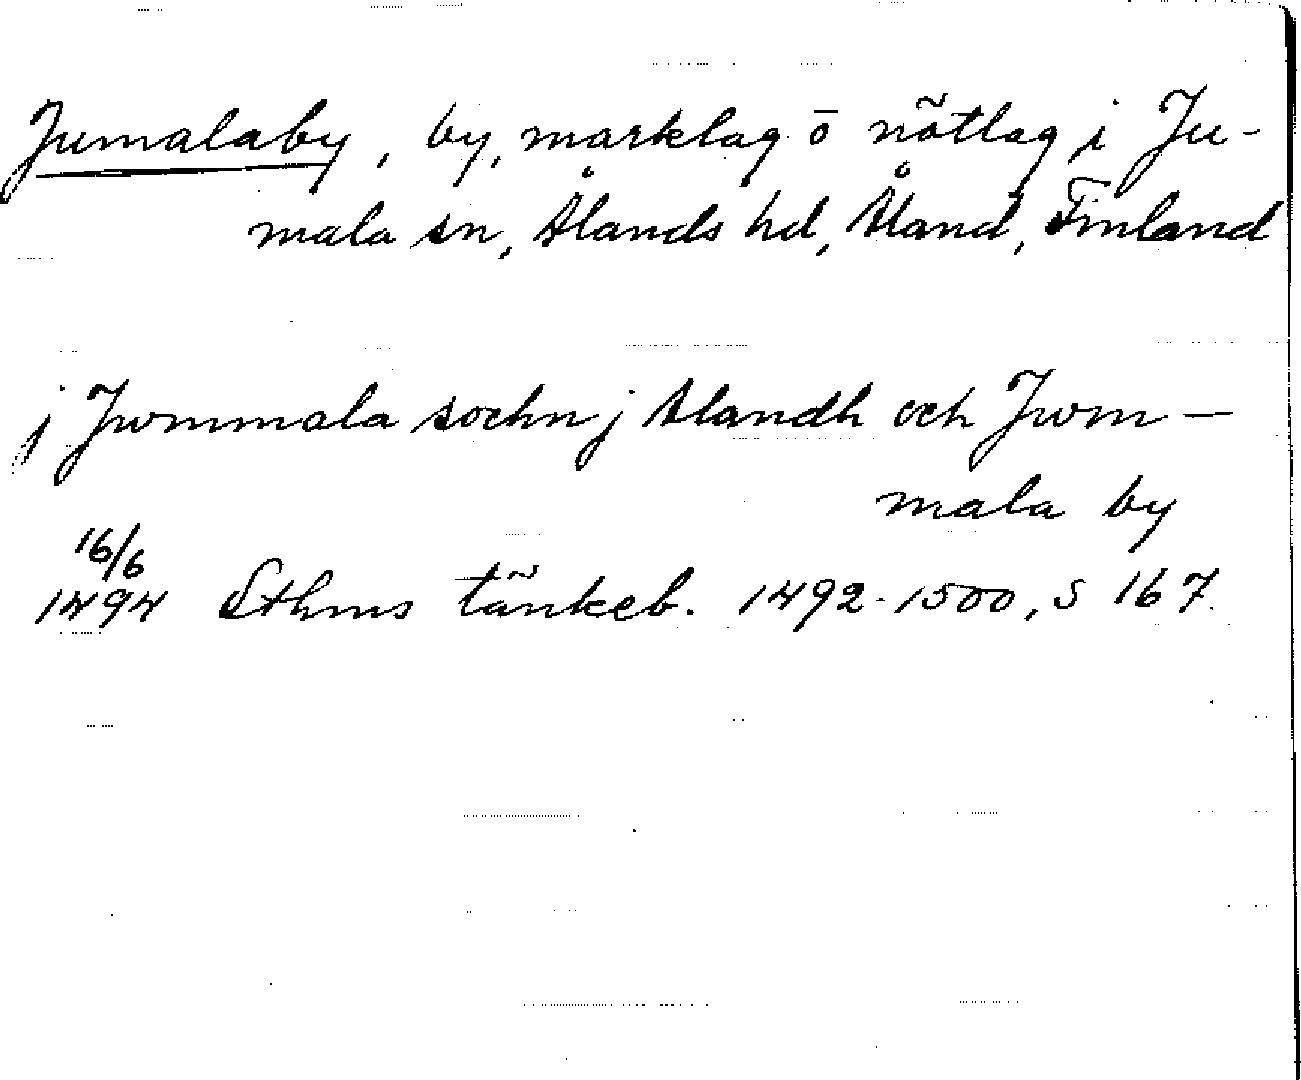 Jumalaby, by, marklag o nötlag i Ju-
mala sn, Ålands hd, Åland, Finland
j Jwmmala sochn j Alandh och Jwm—
mala by
16/6
1494 Sthms tänkeb. 1492-1500, s 167.